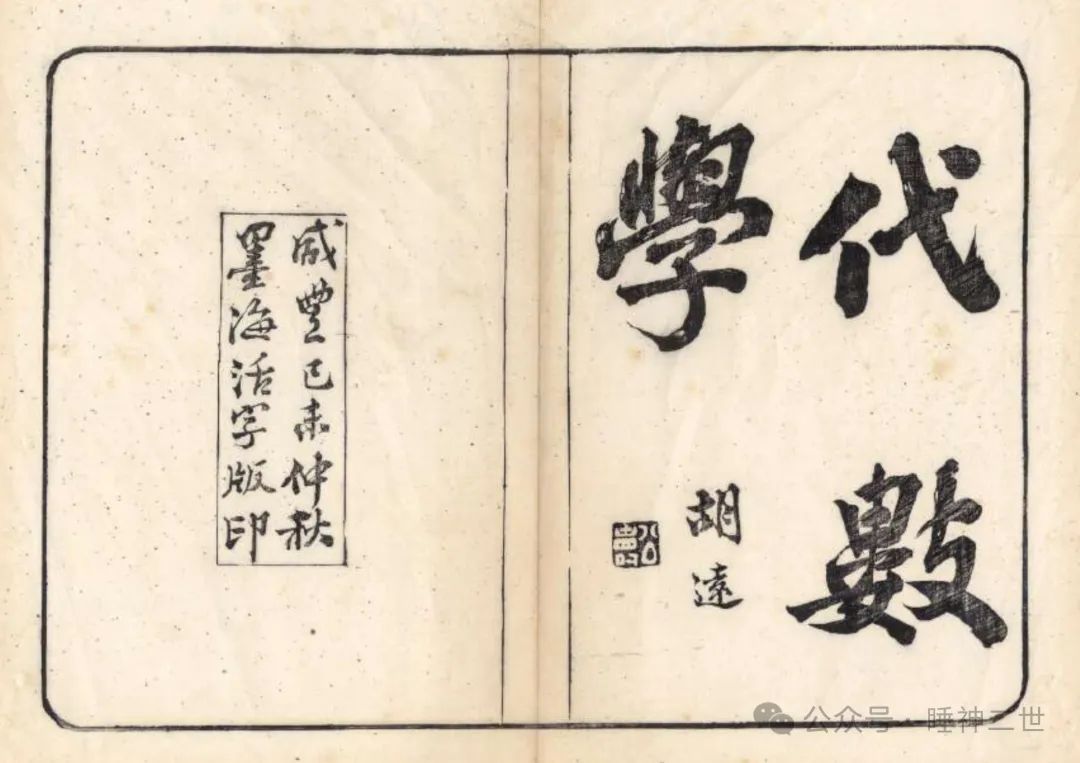 代數
學
胡遠
咸豐己未仲秋
墨海活字版印
公众号 · 睡神二世